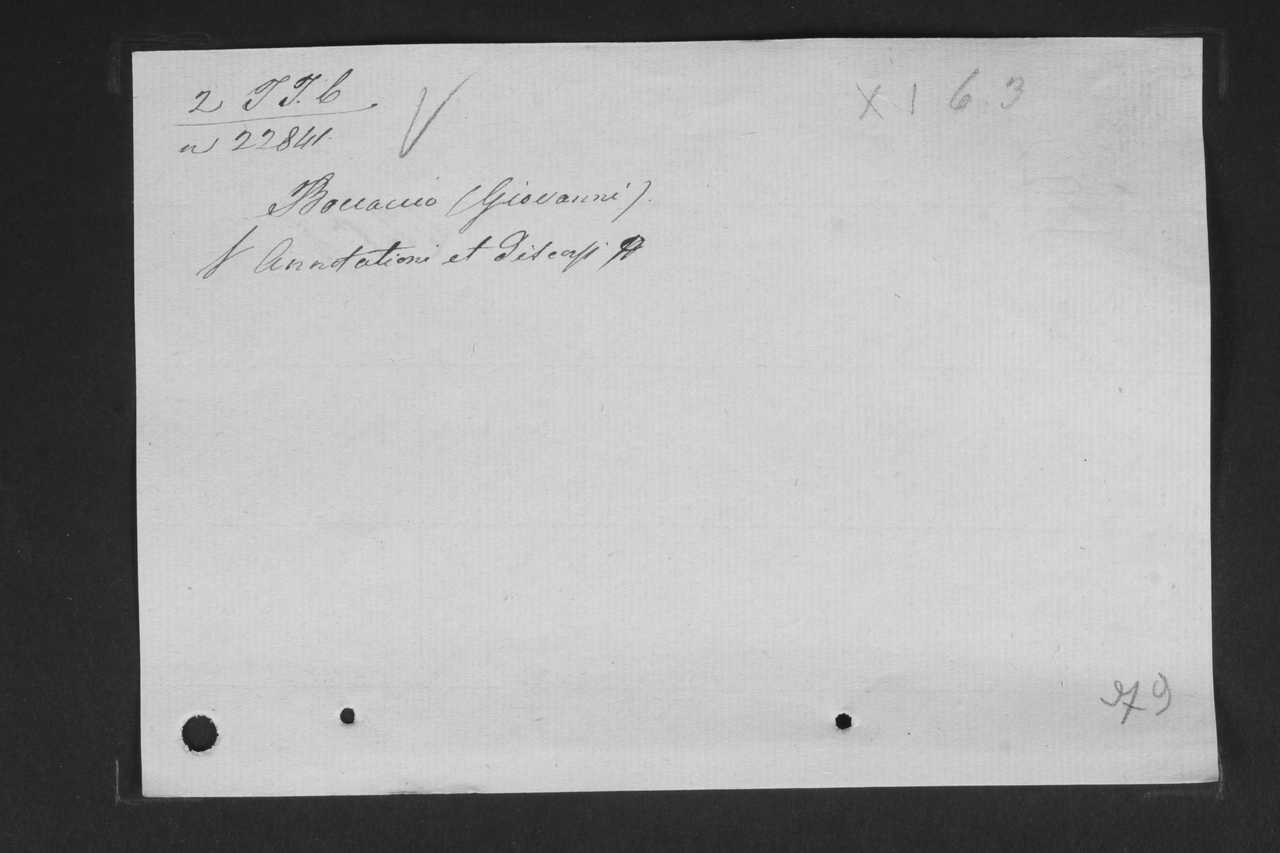 2 T T. b
n 22841.
X I 6 3
Boccaccio (Giovanni).
Annotationi et discorsi
979